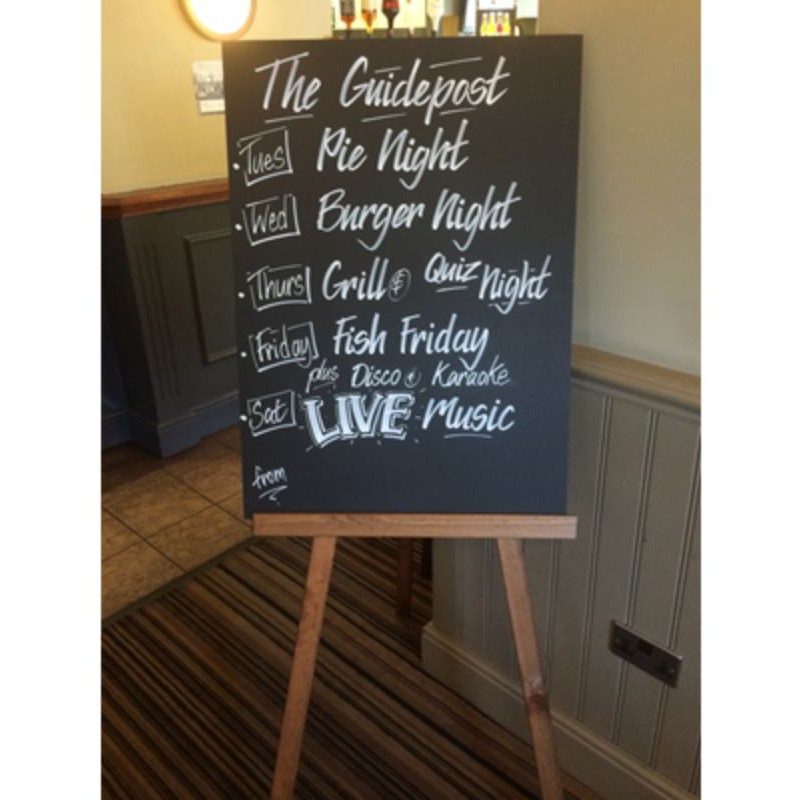 The Guidepost
Tues Pie Night
Wed Burger Night
Thurs Grill & Quiz Night
Friday Fish Friday
plus Disco & Karaoke
Sat LIVE Music
from